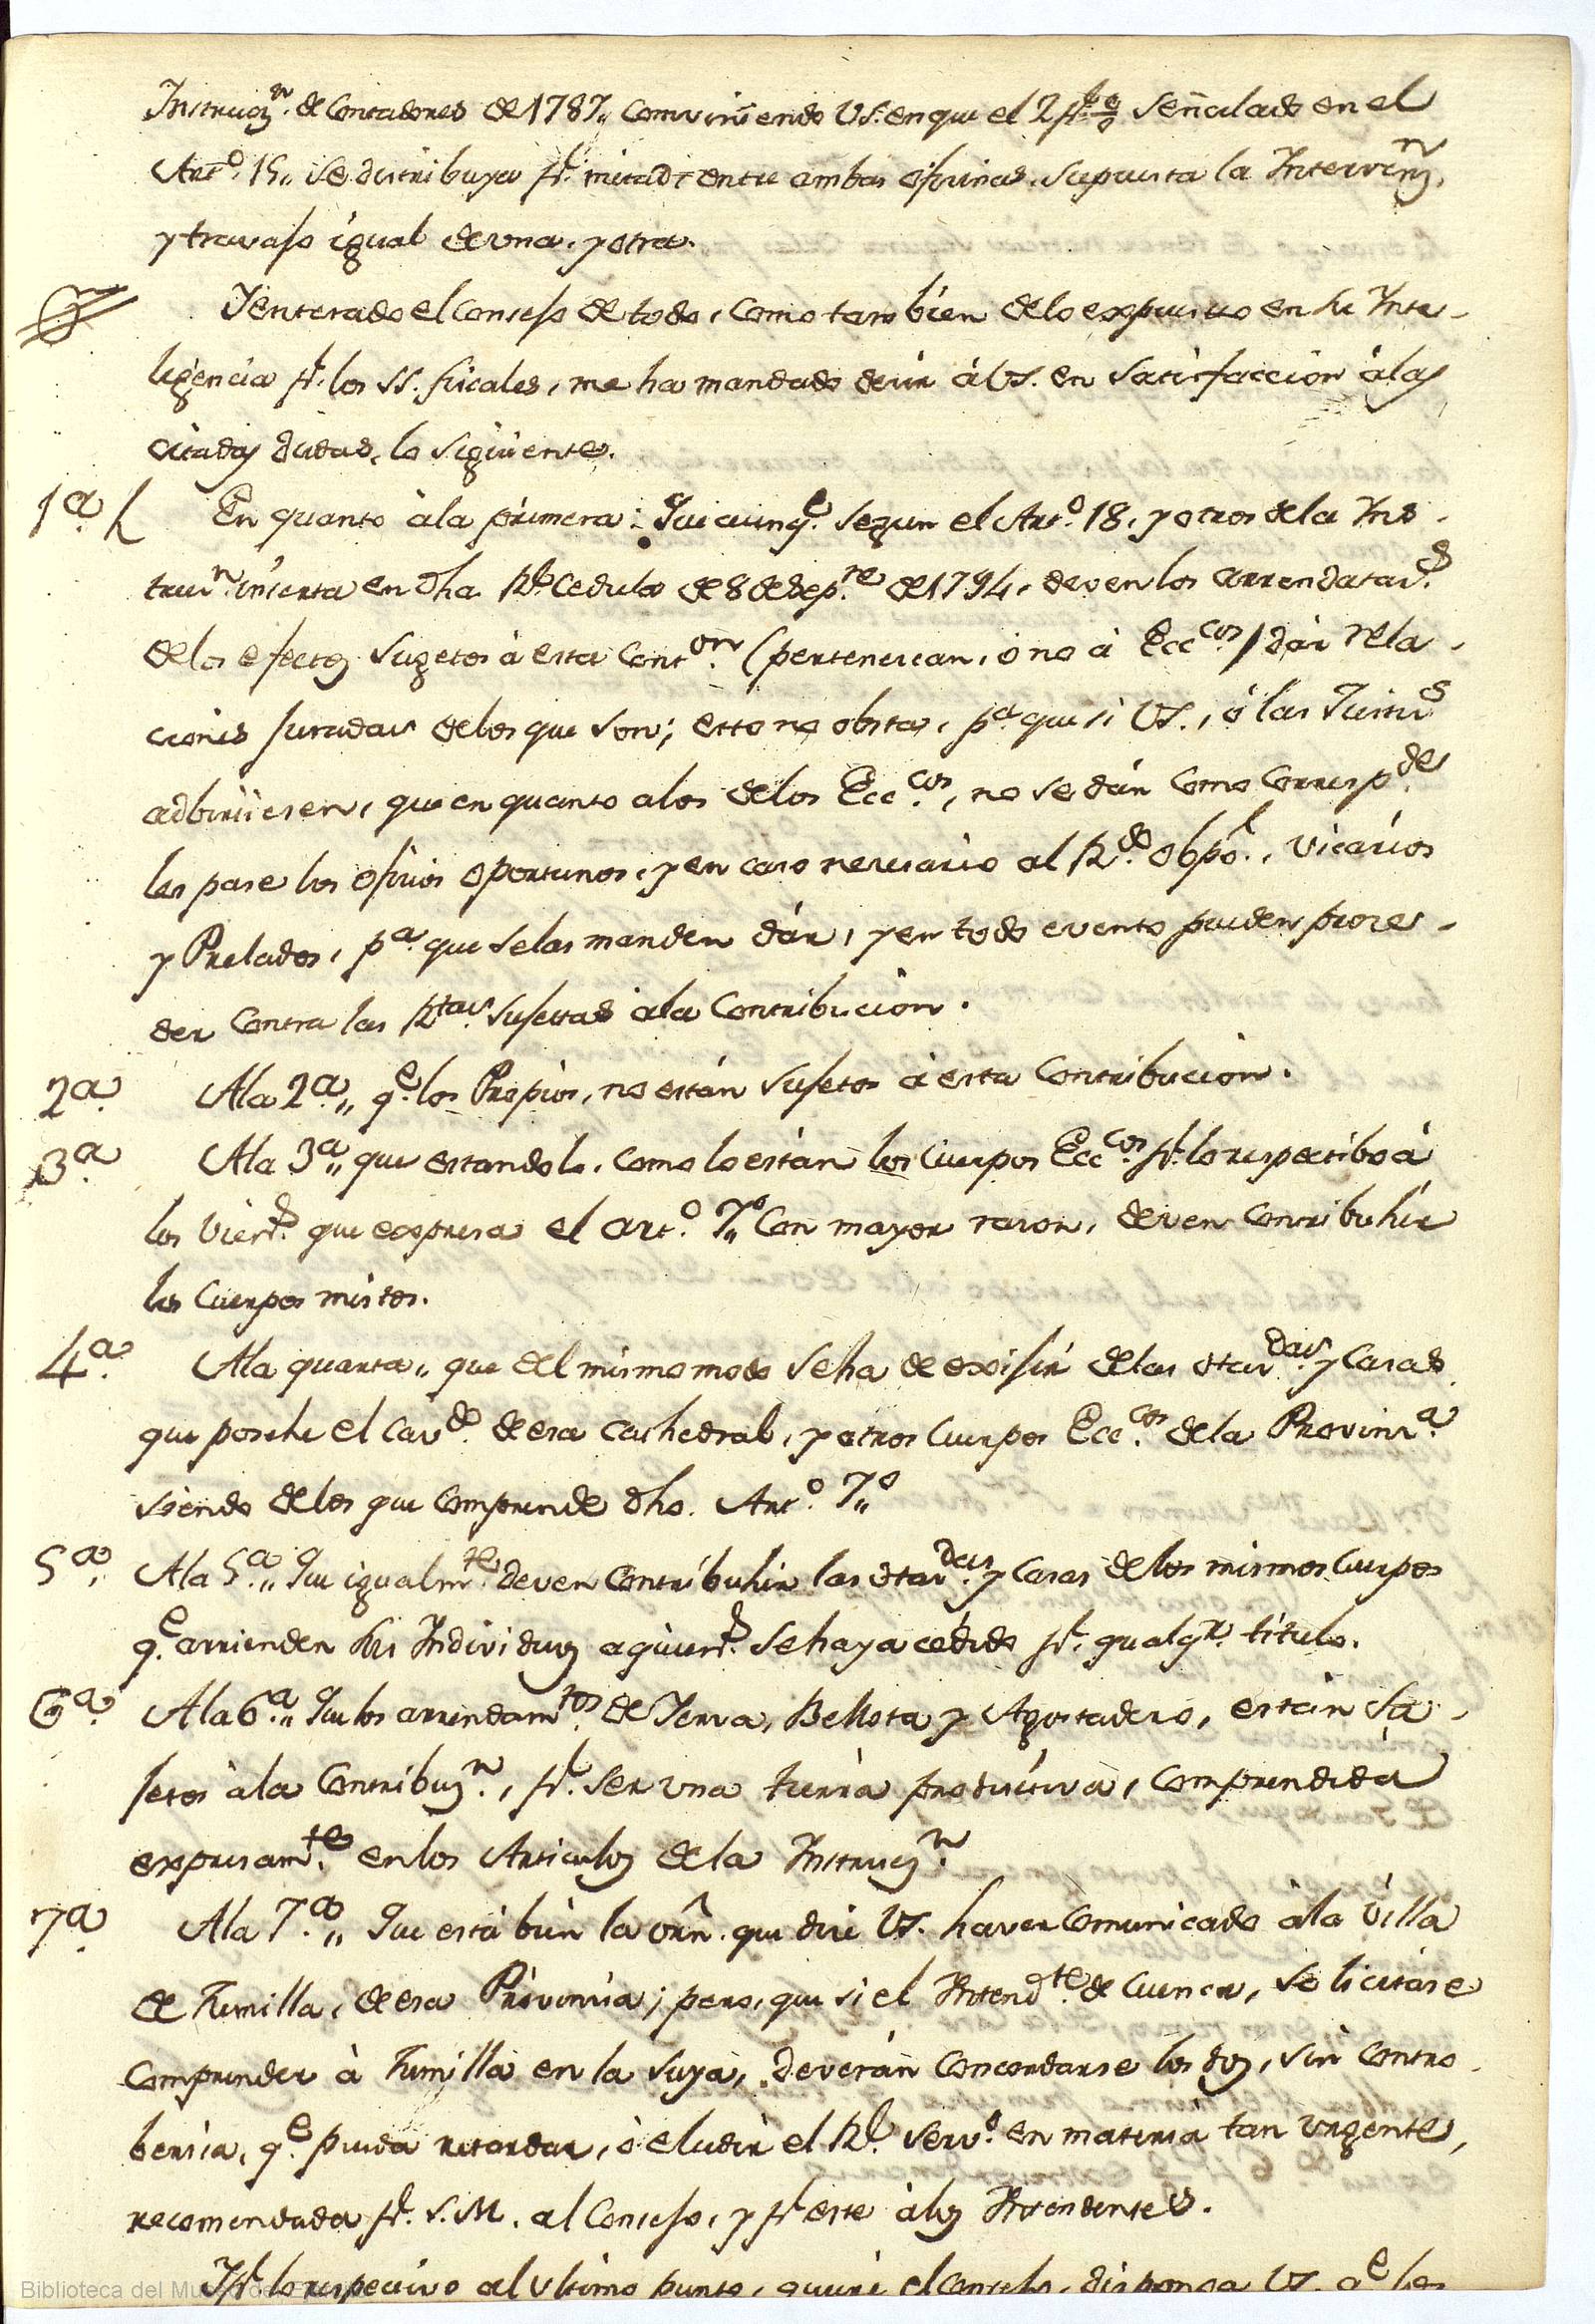 Instrucz.n de Contadores de 1787,, comviniendo VS. en que el 2 p.r % Señalado en el
Art.o 15,, se distribuya p.r mitad entre ambas oficinas, supuesta la Intervenz.n
y travajo igual de una, y otra.
Yenterado el Consejo de todo, como tambien de lo expuesto en su Inte-
ligencia p.r los SS. fiscales, me ha mandado decir à VS. en Satisfaccion à las
citadas dudas, lo Siguiente.
1.a En quanto à la primera: Que aunq.e Segun el Art.o 18, y otros de la Ins-
truc.n inserta en dha R.l Cedula de 8 de Sep.re de 1794, deven los arrendatar.s
de los efectos Sugetos à esta Cont.on (pertenezcan, ò no à Ecc.cos) dàr rela-
ciones juradas de los que son; esto no obsta, p.a que si VS., ò las Justic.s
adbirtiesen, que en quanto a los de los Ecc.cos, no se dàn como Corresp.de
les pase los oficios oportunos, y en caso necesario al R.do Obpo., Vicarios
y Prelados, p.a que se las manden dár, y en todo evento pueden proce-
der Contra las R.tas Sujetas à la Contribucion.
2.a Ala 2.a,, q.e los Propios, no están Sujetos à esta Contribucion.
3.a Ala 3.a,, que estandolo, como lo están los Cuerpos Ecc.cos p.r lo respectibo à
los vien.s que expresa el art.o 7,,o Con mayor razon, deven Contribuhir
los Cuerpos mistos.
4.a Ala quarta,, que del mismo modo Se ha de exijir de las Hav.das y Casas
que posehe el Cav.do de esa Cathedral, y otros Cuerpos Ecc.cos de la Provinz.a
siendo de los que Comprende dho. Art.o 7,,o
5.a Ala 5.a,, Que igualm.te deven Contribuhir las Hav.das y Casas de los mismos Cuerpos
q.e arrienden sus Individuos a quien.s Se haya cedido p.r qualq.r titulo.
6.a Ala 6.a,, Que los arrendam.tos de Yerva, Bellota y Agostadero, están Su-
jetos à la Contribuz.n, p.r Ser una tierra productiva, Comprendida
expresam.te en los Articulos de la Instrucz.n
7.a Ala 7.a,, Que està bien la orn. que dice VS. haver Comunicado à la Villa
de Jumilla, de esa Provincia; pero, que si el Intend.te de Cuenca, Solicitáse
Comprender à Jumilla en la Suya, deverán Concordarse los dos, sin Contro-
bersia, q.e pueda retardar, ò eludir el R.l Serv.o en materia tan urgente,
recomendada p.r S.M. al Consejo, y p.r este à los Intendentes.
Y p.r lo respectivo al ultimo punto, quiere el Consejo, disponga VS. q.e los
Biblioteca del Museo del